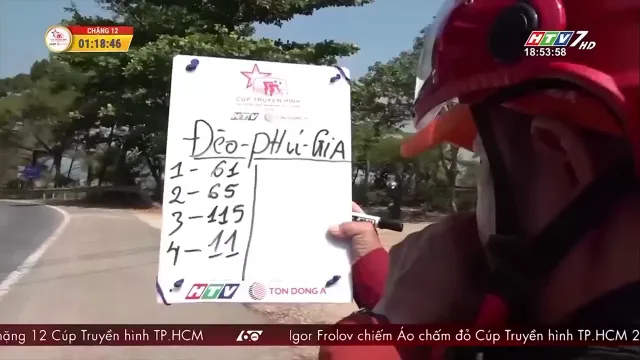 CHẶNG 12
01:18:46
HTV7 HD
18:53:58
CÚP TRUYỀN HÌNH
HTV TON DONG A
Đèo-PHú-GiA
1-61
2-65
3-115
4-11
HTV TON DONG A
ặng 12 Cúp Truyền hình TP.HCM Igor Frolov chiếm Áo chấm đỏ Cúp Truyền hình TP.HCM 2